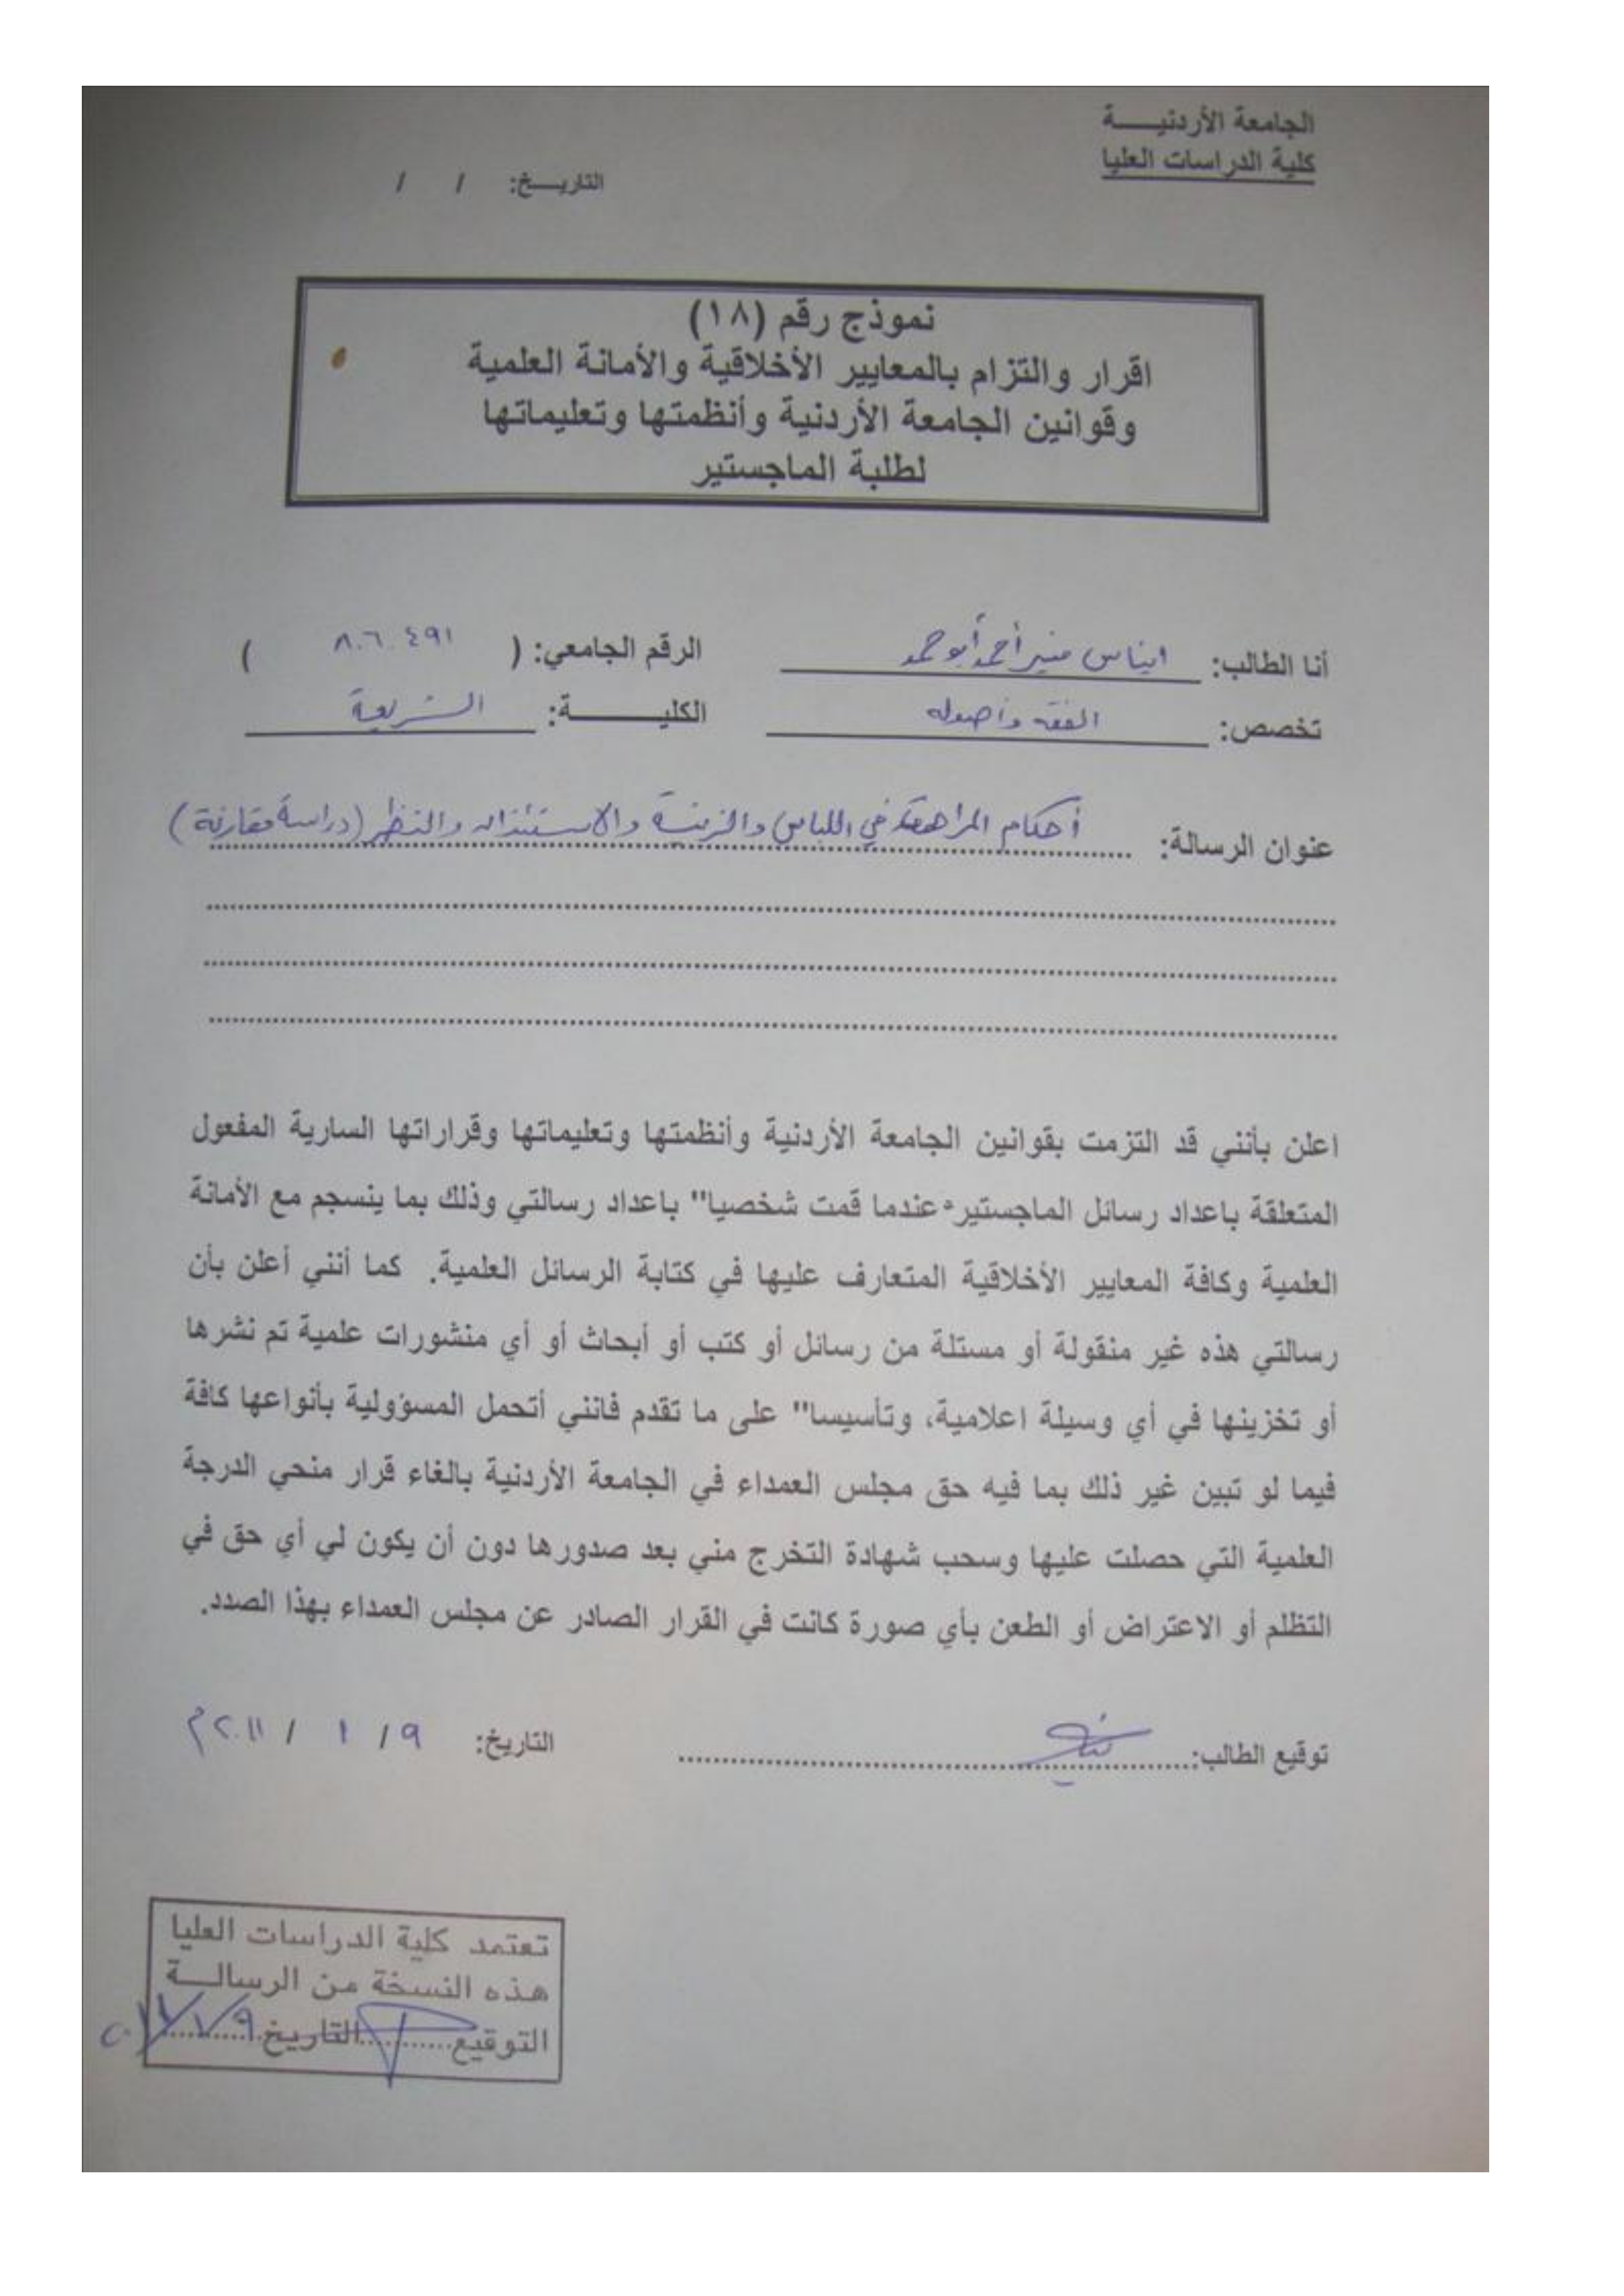 الجامعة الأردنيـــة
كلية الدراسات العليا
التاريــخ: / /
نموذج رقم (١٨)
اقرار والتزام بالمعايير الأخلاقية والأمانة العلمية
وقوانين الجامعة الأردنية وأنظمتها وتعليماتها
لطلبة الماجستير
أنا الطالب: ايناس منير أحمد أبو حمد الرقم الجامعي: ( ٨٠٦٠٤٩١ )
تخصص: الفقه وأصوله الكليــــــة: الشريعة
عنوان الرسالة: أحكام المراهقة في اللباس والزينة والاستئذان والنظر (دراسة مقارنة)
اعلن بأنني قد التزمت بقوانين الجامعة الأردنية وأنظمتها وتعليماتها وقراراتها السارية المفعول
المتعلقة باعداد رسائل الماجستير عندما قمت شخصيا" باعداد رسالتي وذلك بما ينسجم مع الأمانة
العلمية وكافة المعايير الأخلاقية المتعارف عليها في كتابة الرسائل العلمية. كما أنني أعلن بأن
رسالتي هذه غير منقولة أو مستلة من رسائل أو كتب أو أبحاث أو أي منشورات علمية تم نشرها
أو تخزينها في أي وسيلة اعلامية، وتأسيسا" على ما تقدم فانني أتحمل المسؤولية بأنواعها كافة
فيما لو تبين غير ذلك بما فيه حق مجلس العمداء في الجامعة الأردنية بالغاء قرار منحي الدرجة
العلمية التي حصلت عليها وسحب شهادة التخرج مني بعد صدورها دون أن يكون لي أي حق في
التظلم أو الاعتراض أو الطعن بأي صورة كانت في القرار الصادر عن مجلس العمداء بهذا الصدد.
توقيع الطالب: التاريخ: ٩ / ١ / ٢٠١١م
تعتمد كلية الدراسات العليا
هذه النسخة من الرسالــة
التوقيع..........التاريخ..........